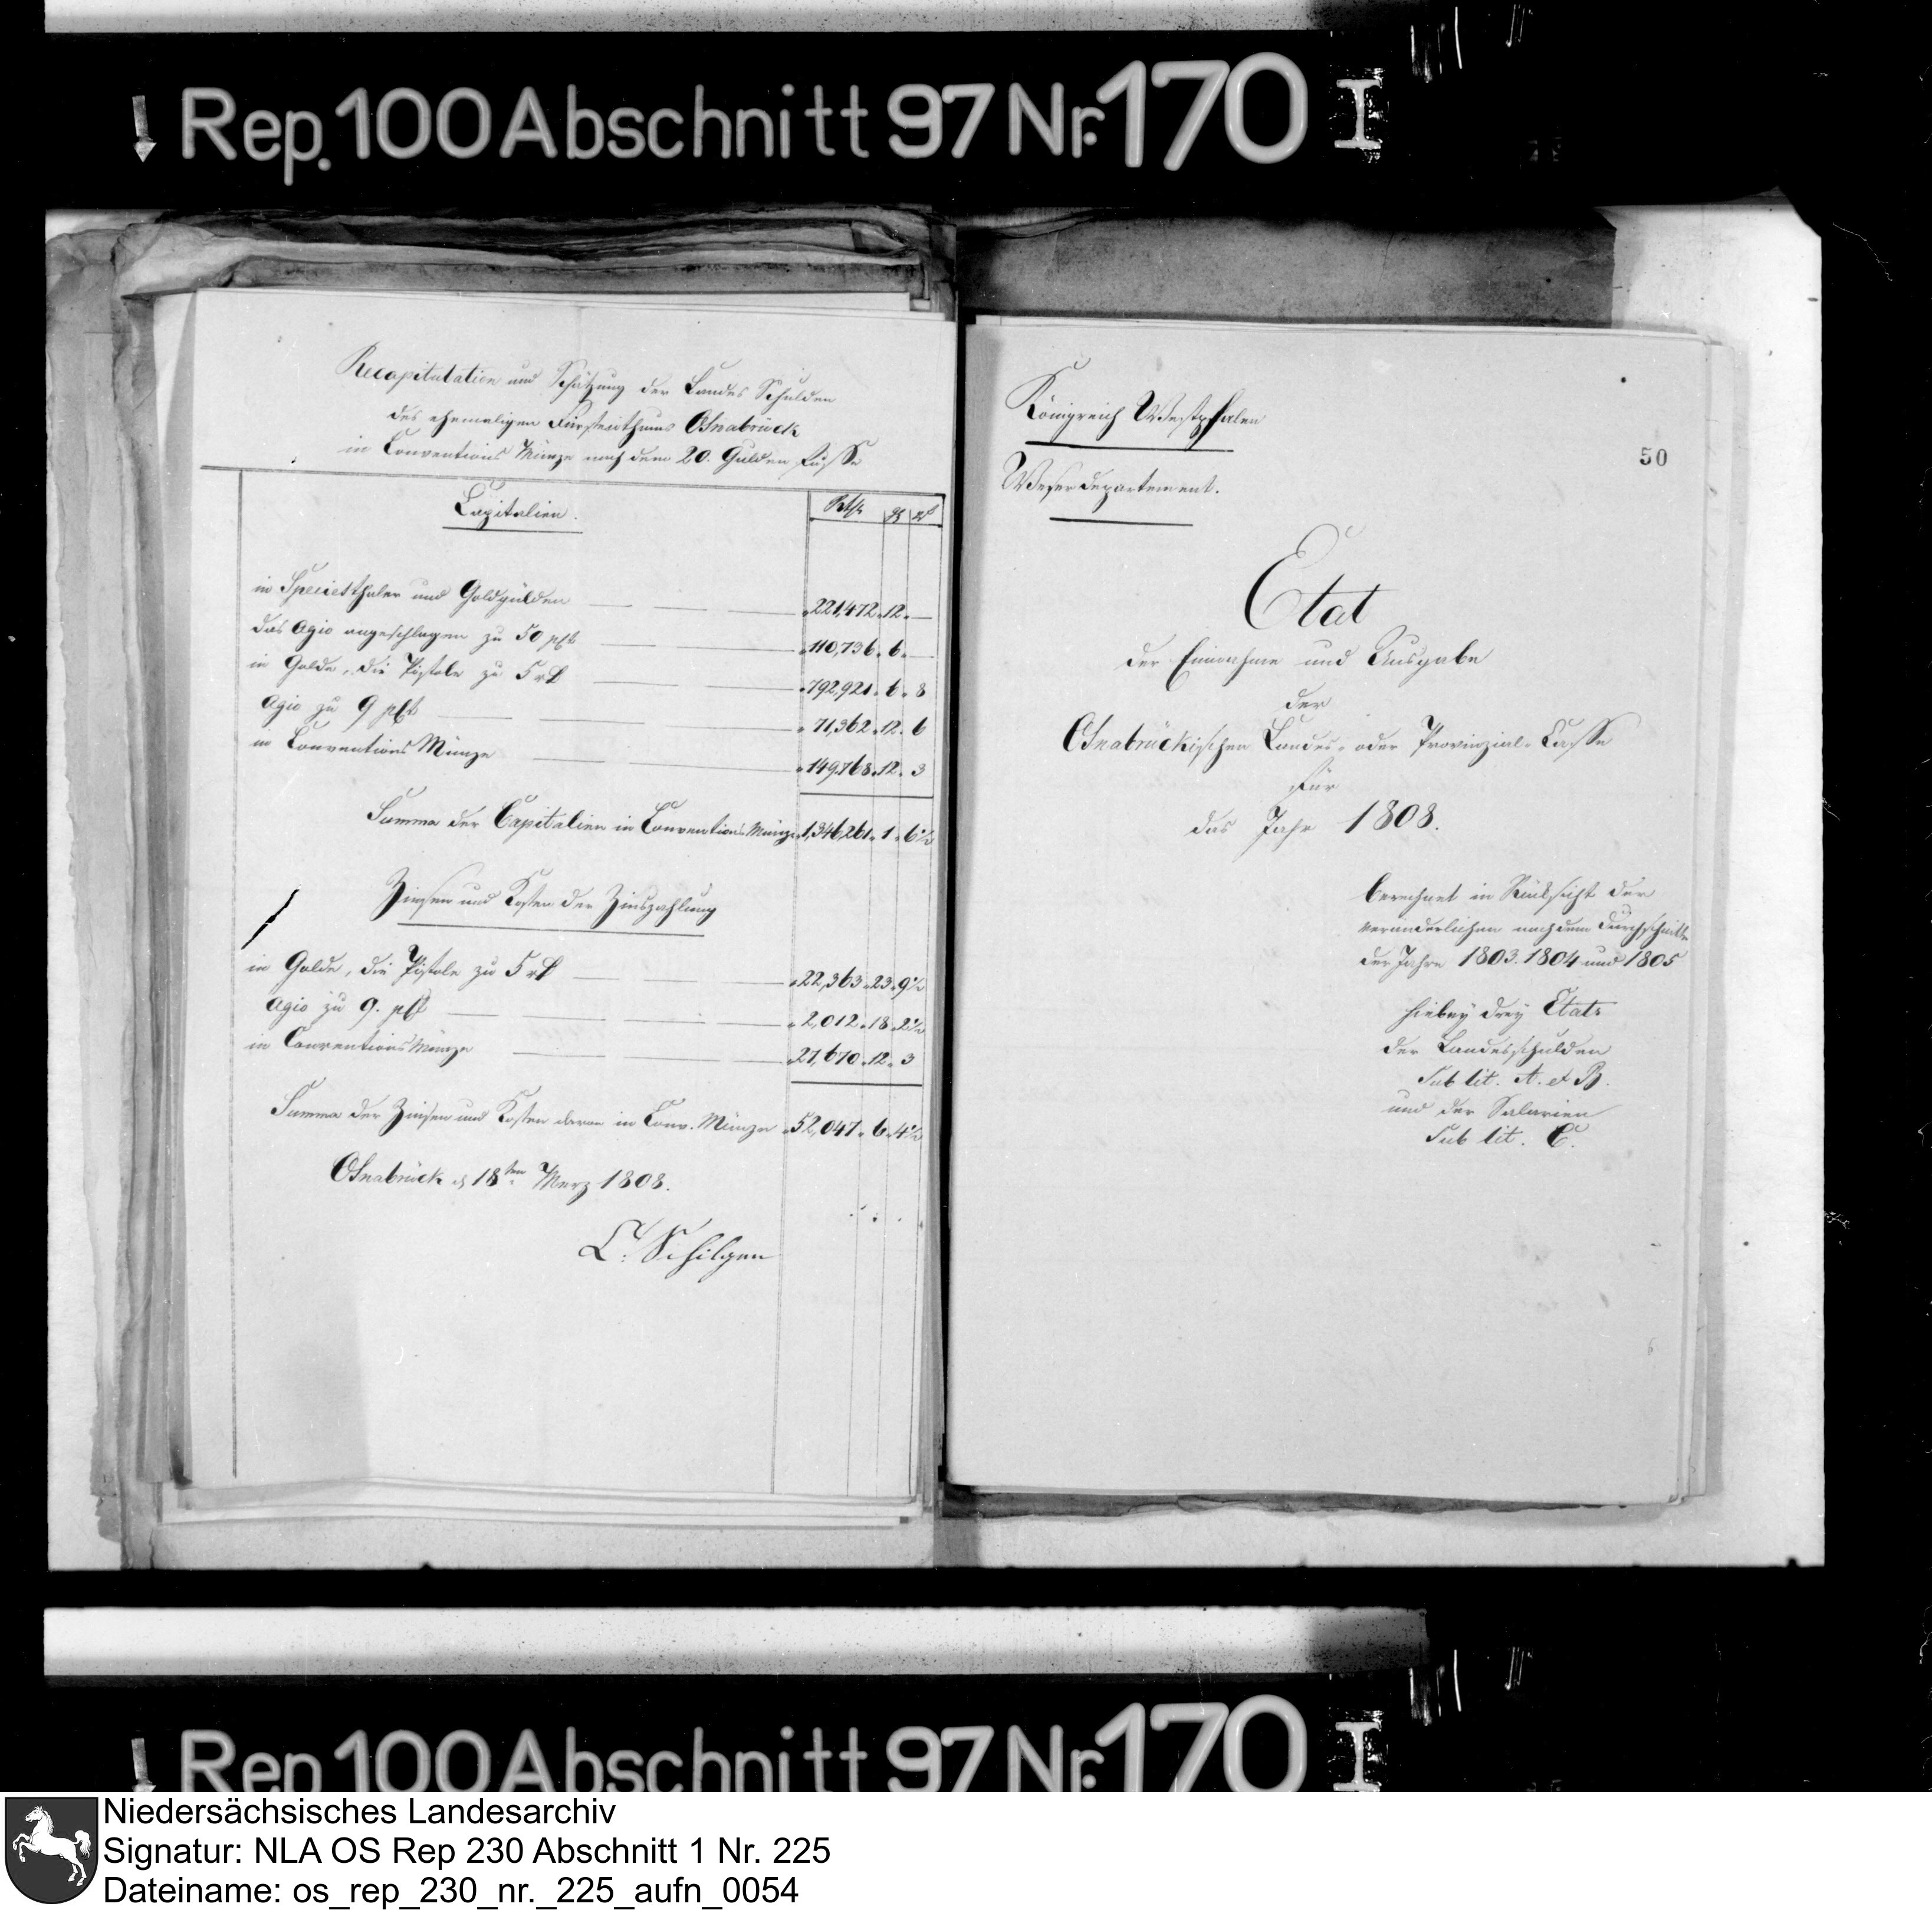 Rep. 100 Abschnitt 97 Nr. 170 I
Recapitulation und Schätzung der Landes Schulden
des ehemaligen Fürstenthums Osnabrück
in Conventions Münze nach dem 20. Gulden Fuße
Capitalien.
Rthr ggl ₰
in Speciesthaler und Goldgülden 221,472 . 12 . —
das Agio angeschlagen zu 50 pCt 110,736 . 6 . —
in Golde, die Pistole zu 5 rt 792,921 . 6 . 8
Agio zu 9 pCt 71,362 . 12 . 6
in Conventions Münze 149,768 . 12 . 3
Summa der Capitalien in Conventions Münze 1,346,261 . 1 . 6½
Zinsen und Kosten der Zinszahlung
in Golde, die Pistole zu 5 rt 22,363 . 23 . 9½
Agio zu 9. pCt 2,012 . 18 . 2½
in Conventions Münze 27,670 . 12 . 3
Summa der Zinsen und Kosten davon in Conv. Münze 52,047 . 6 . 4½
Osnabrück d 18ten Merz 1808.
C. Schilgen
Königreich Westphalen
50
Weser departement.
Etat
der Einnahme und Ausgabe
der
Osnabrückischen Landes- oder Provinzial-Casse
für
das Jahr 1808.
berechnet in Rücksicht der
veränderlichen nach dem Durchschnitte
der Jahre 1803. 1804 und 1805
hiebey drey Etats
der Landesschulden
Sub lit. A. et B.
und der Salarien
Sub lit. C.
Rep. 100 Abschnitt 97 Nr. 170 I
Niedersächsisches Landesarchiv
Signatur: NLA OS Rep 230 Abschnitt 1 Nr. 225
Dateiname: os_rep_230_nr._225_aufn_0054